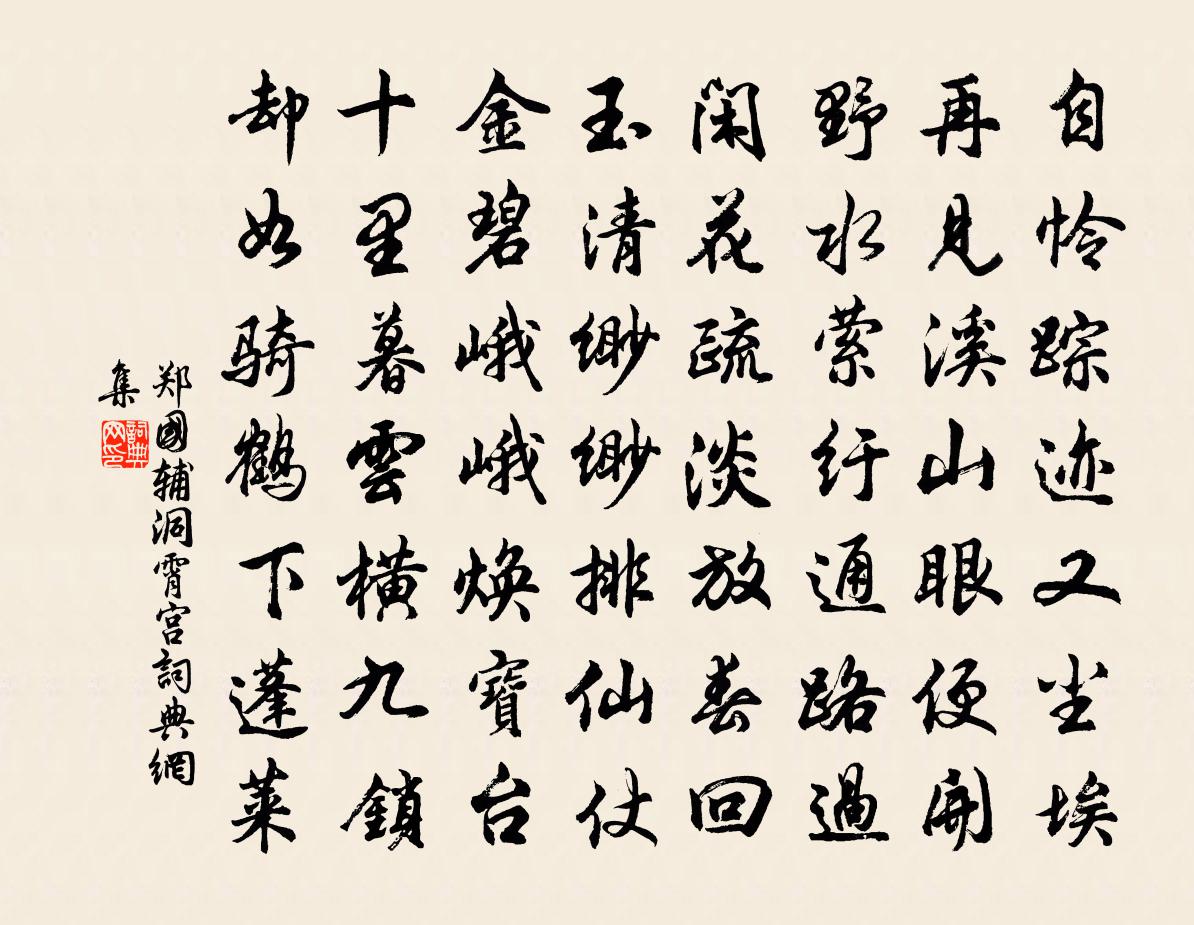 自怜踪迹又尘埃
再见溪山眼便開
野水萦纡通路過
闲花疏淡放春回
玉清缈缈排仙仗
金碧峨峨焕寶台
十里暮雲横九鎖
却如骑鹤下蓬莱
郑國辅洞霄宫詞典網
集
詞典
网印